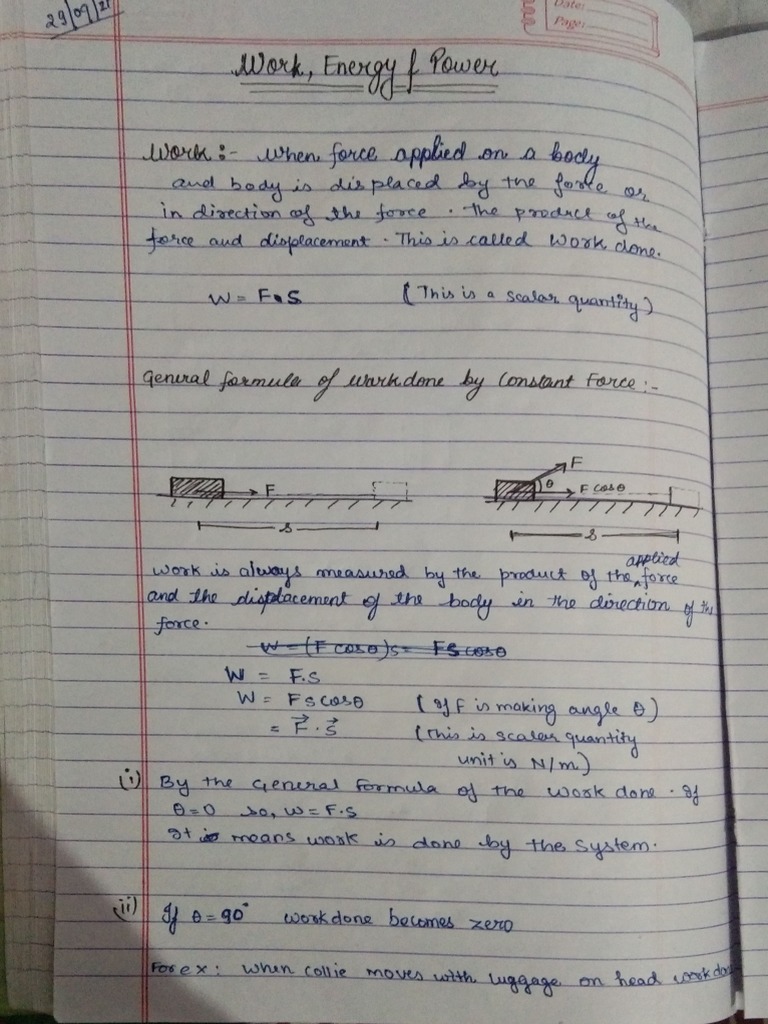 29/09/21
Date:
Page:
Work, Energy & Power
Work :- When force applied on a body
and body is displaced by the force or
in direction of the force. The product of the
force and displacement. This is called Work done.
W = F.S (This is a scalar quantity)
General formula of workdone by Constant Force :-
F
S
F
θ
F cosθ
S
applied
Work is always measured by the product of the ^ force
and the displacement of the body in the direction of the
force.
W = (F cosθ)S = FS cosθ
W = F.S
W = FS cosθ (If F is making angle θ)
= F⃗ . S⃗ (This is scalar quantity
unit is N/m)
(i) By the General Formula of the work done. If
θ=0 so, W = F.S
It is means work is done by the System.
(ii) If θ = 90° workdone becomes zero
For ex: when collie moves with luggage on head workdone